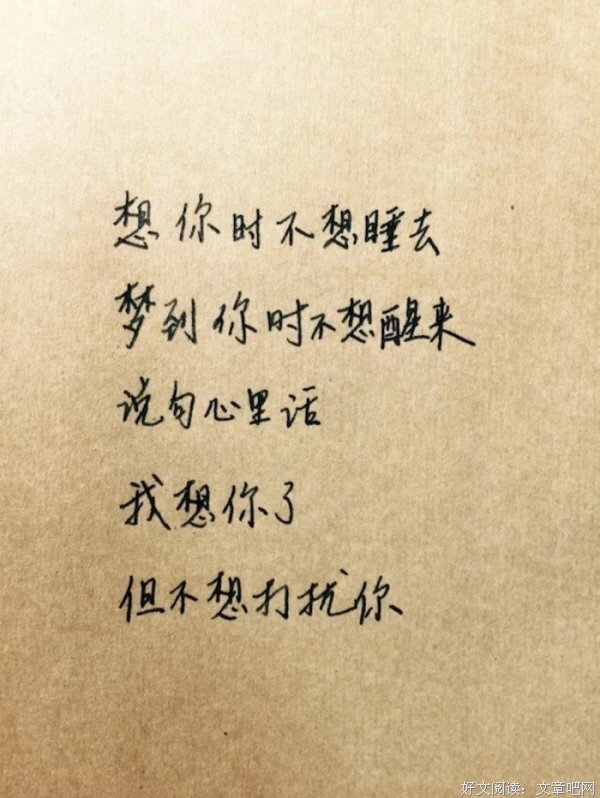 想你时不想睡去
梦到你时不想醒来
说句心里话
我想你了
但不想打扰你
好文阅读：文章吧网